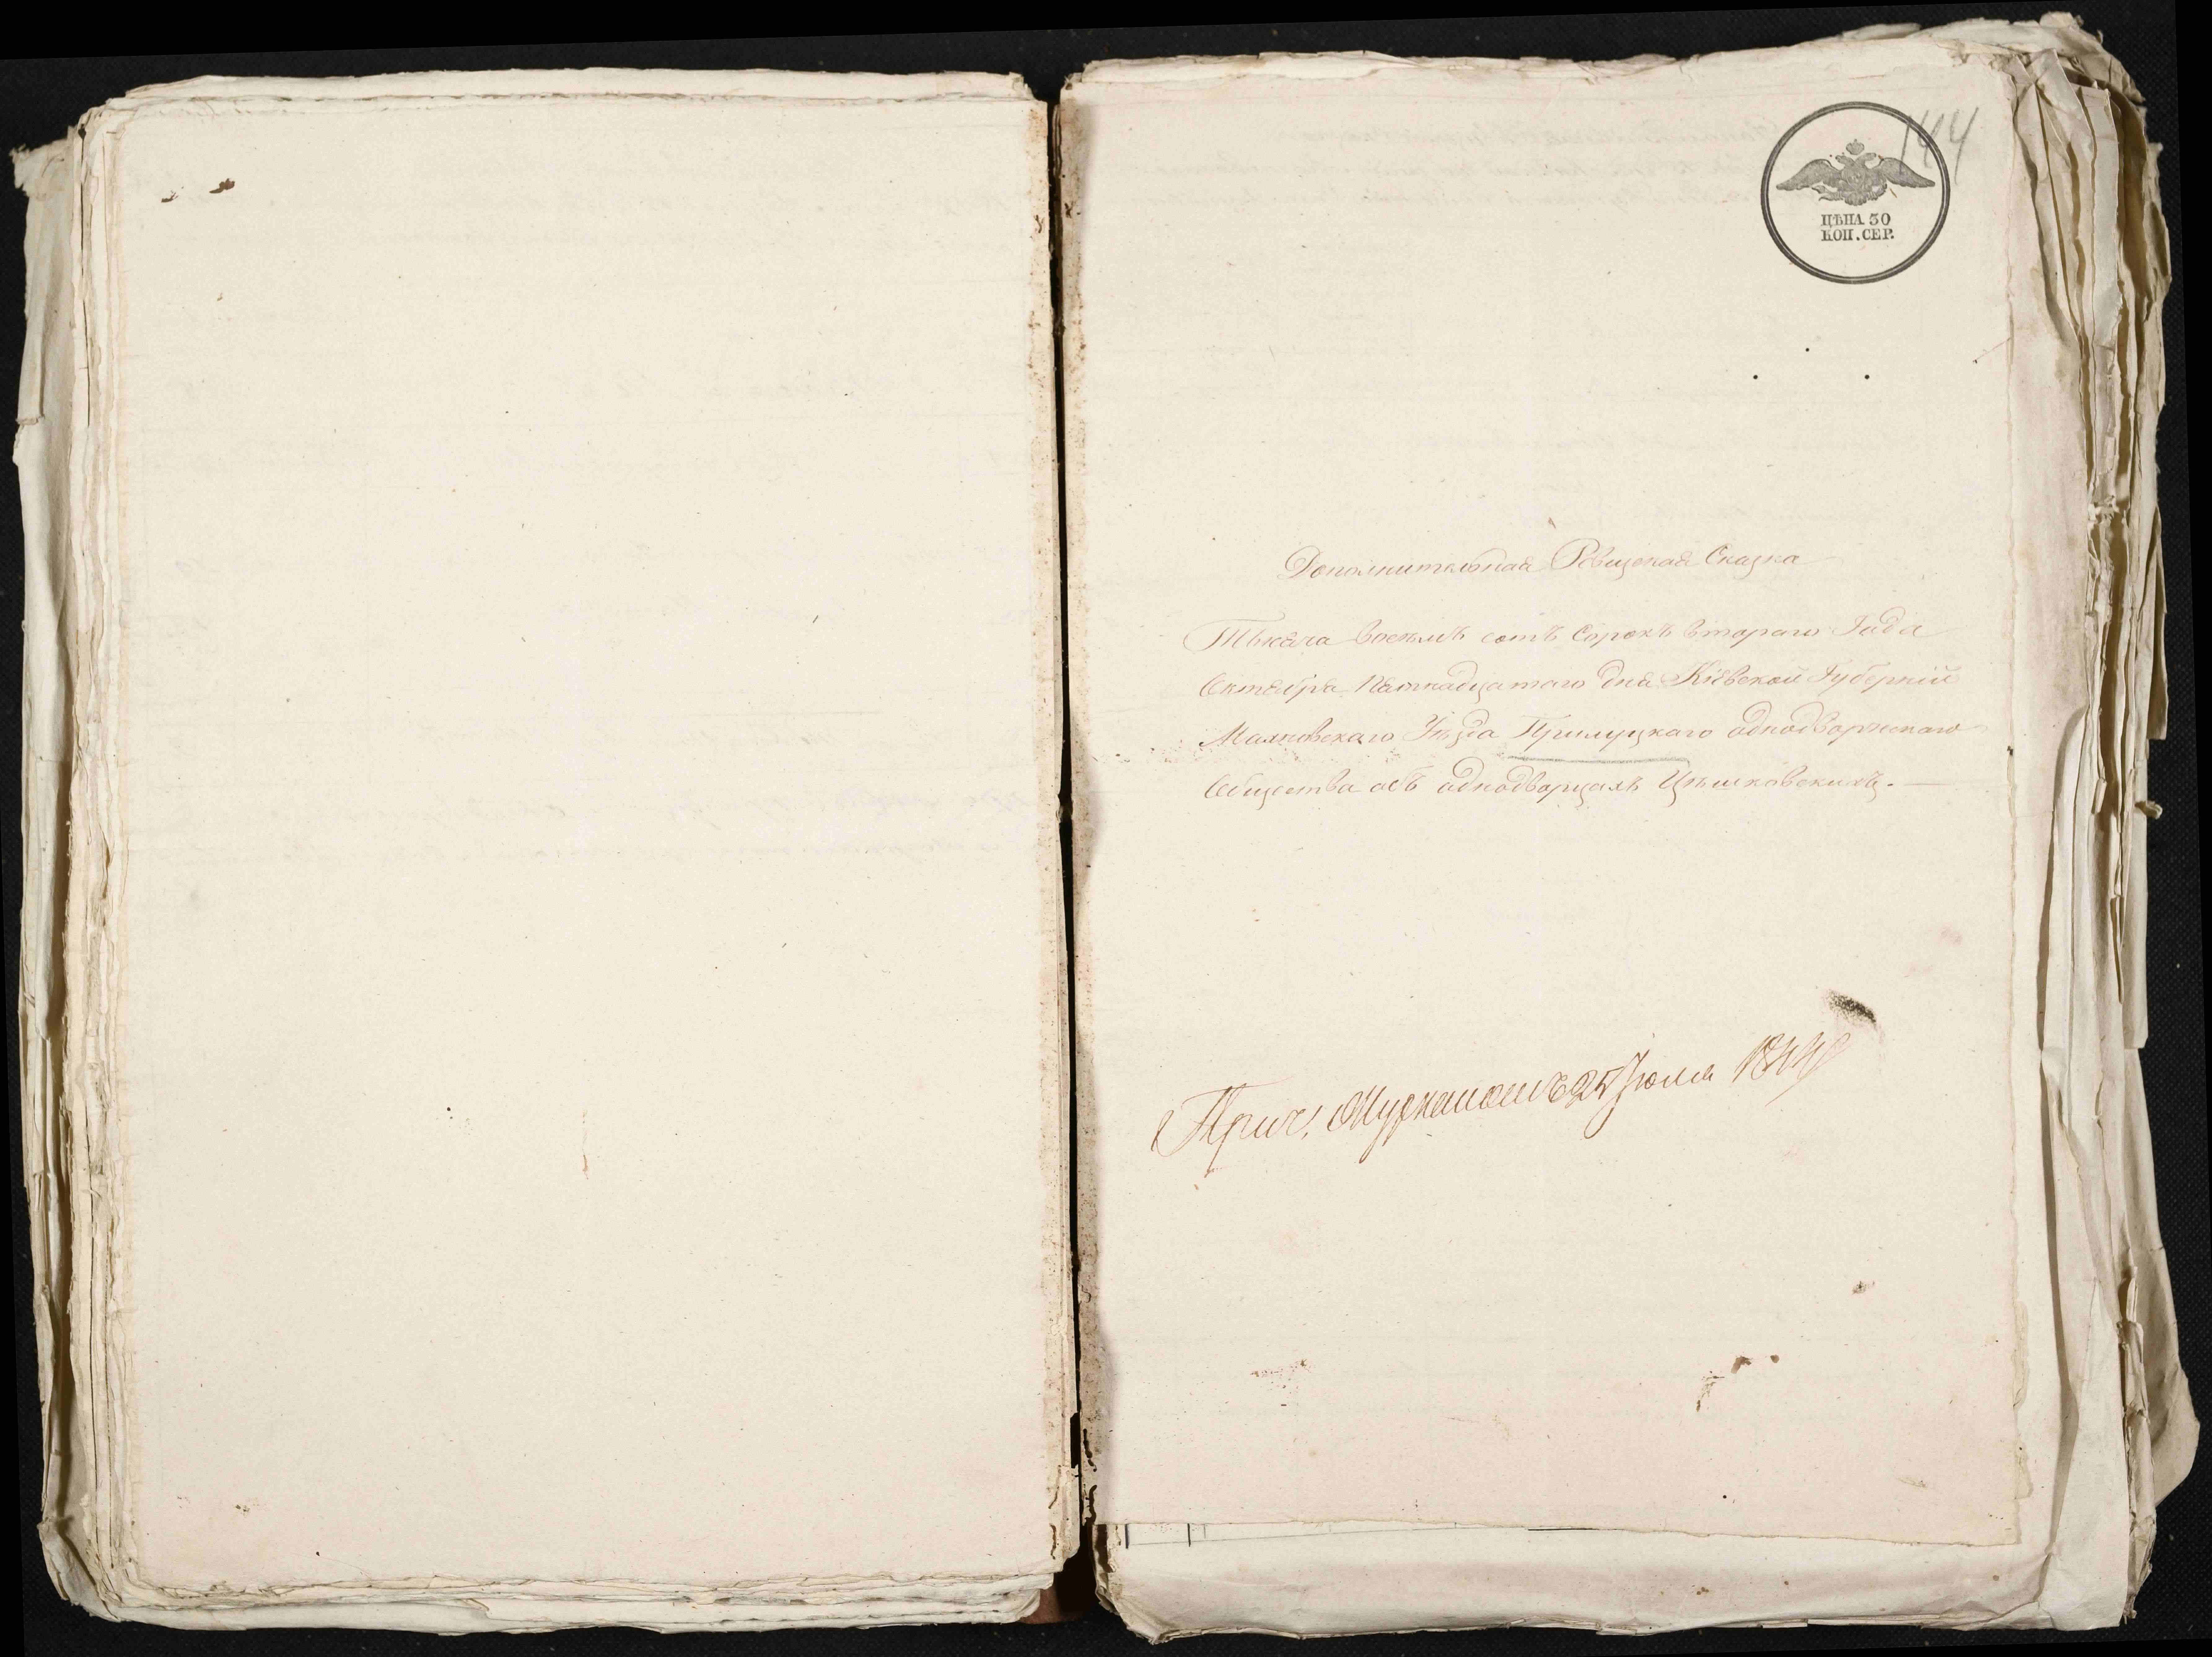 144
ЦѢНА 30
КОП. СЕР.
Дополнительная Ревизская Сказка
Тысяча восемъ сотъ сорокъ втораго Года
Октября Пятнадцатаго дня Кіевской Губерніи
Уѣзда Прилуцкаго однодворческаго
Общества объ однодворцахъ Цѣшковскихъ. —
25 Іюля 1844